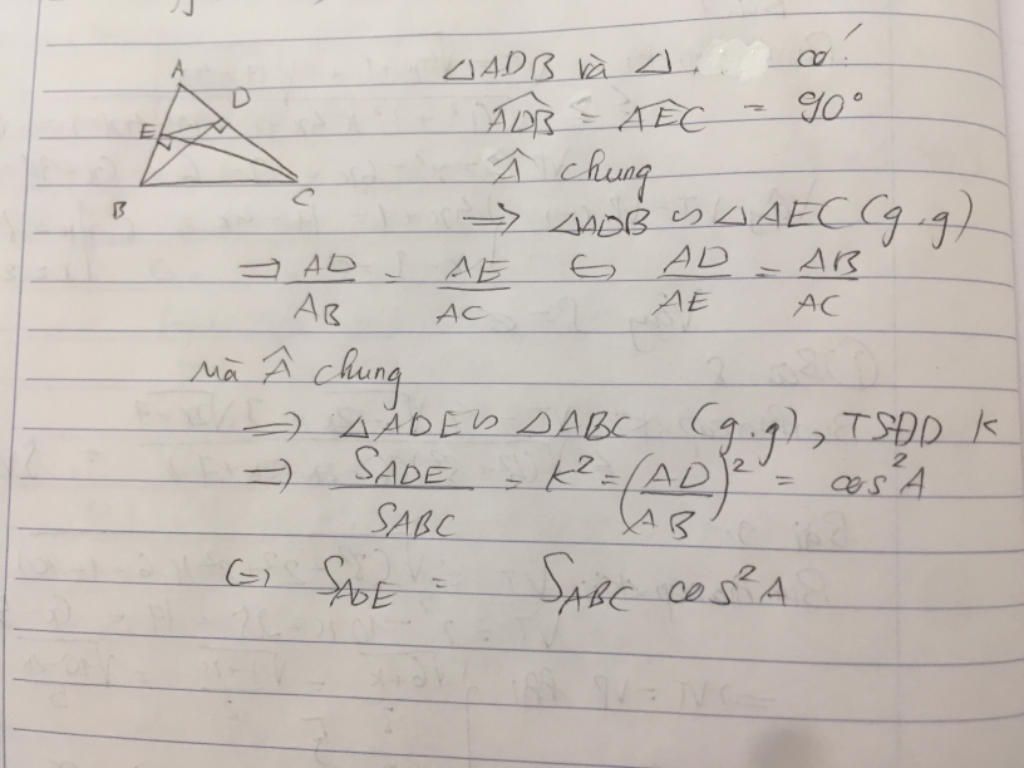 A
D
E
B
C
△ADB và △ có:
∠ADB = ∠AEC = 90°
Â chung
⇒ △ADB ∽ △AEC (g.g)
⇒ AD/AB = AE/AC ⇔ AD/AE = AB/AC
mà Â chung
⇒ △ADE ∽ △ABC (g.g), TSĐD K
⇒ SADE/SABC = K² = (AD/AB)² = cos²A
⇔ SADE = SABC cos²A